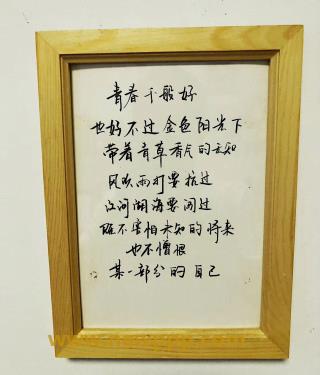 青春千般好
也好不过金色阳光下
带着青草香气的无知
风吹雨打要抗过
江河湖海要闯过
既不害怕未知的将来
也不憎恨
某一部分的自己